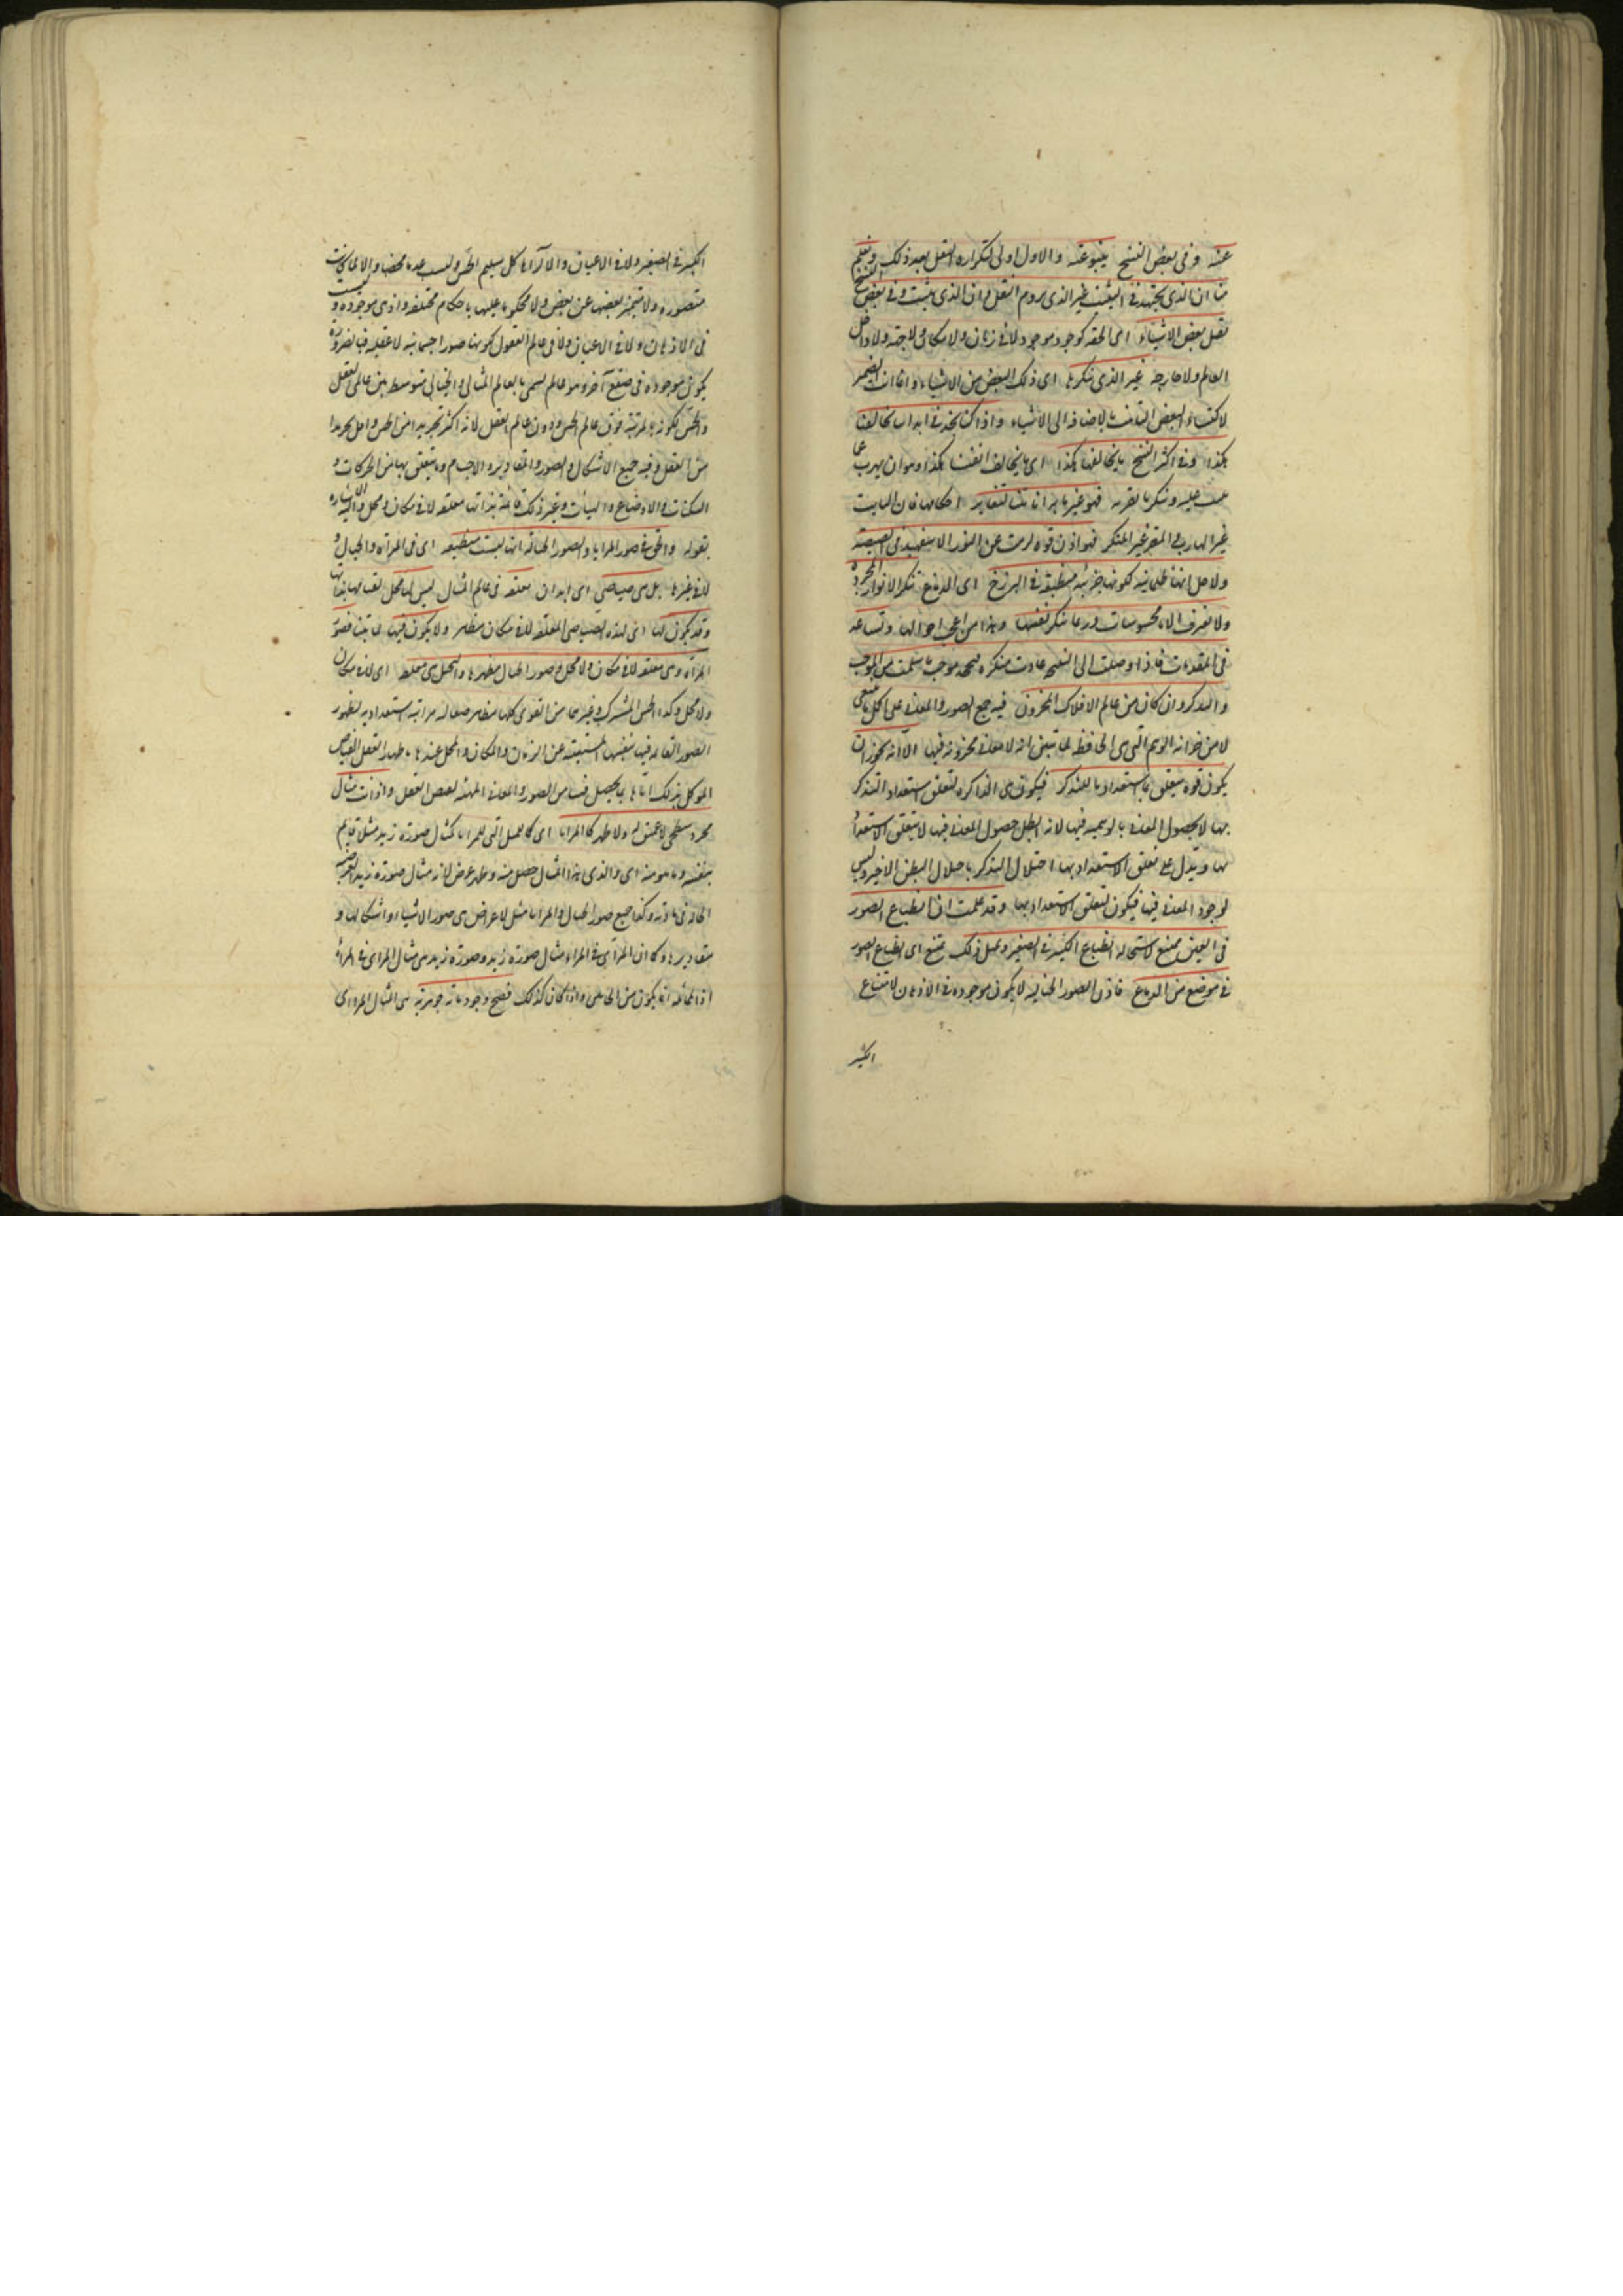 عنه وفى بعض النسخ ينبو عنه والاول اولى لتكراره النقل بعد ذلك ونعلم
منا ان الذى يجتهد فى التثبت غير الذى يروم النقل وان الذى يثبت وفى بعض النسخ
نقل بعض الاشياء اى الحقه كوجود موجود لا فى زمان ولا مكان ولا جهة ولا داخل
العالم ولا خارجه غير الذى ينكرها اى ذلك البعض من الاشياء وانما انث الضمير
لاكتساء البعض التانيث بالاضافة الى الاشياء واذا كنا نجد فى ابداننا ما يخالفنا
هكذا وفى اكثر النسخ ما يخالفها هكذا اى ما يخالف انفسنا هكذا وهو ان يهرب عما
نثبت عليه وينكر ما نقر به فهو غير ما به انائيتنا لتغاير احكامها فان الثابت
غير الهارب والمقر غير المنكر فهو اذن قوة لزمت عن النور الاسفهبذ فى الصيصية
ولاجل انها ظلمانية لكونها جزئية منطبعة فى البرزخ اى الدماغ تنكر الانوار المجردة
ولا تعترف الا بالمحسوسات وربما تنكر نفسها وهذا من اعجب احوالها وتساعد
فى المقدمات فاذا وصلت الى النتيجة عادت منكرة فتجحد موجب ما سلمت من الموجب
والتذكر وان كان من عالم الافلاك المخزون فيه جميع الصور والمعانى على الكل ما ينبغى
لا من خزانة الوهم التى هى الحافظة لما تبين انه لا معانى مخزونة فيها الا انه يجوز ان
يكون قوة يتعلق بها استعداد ما للتذكر فيكون هى الذاكرة لتعلق استعداد التذكر
بها لا لحصول المعانى بالوهمية فيها لانه ابطل حصول المعانى فيها لا يتعلق الاستعداد
بها ويدل على تعلق الاستعداد بها اختلال التذكر باختلال البطن الاخير وليس
لوجود المعانى فيها فيكون لتعلق الاستعداد بها وقد علمت ان انطباع الصور
فى العين ممتنع لاستحالة انطباع الكبير فى الصغير وبمثل ذلك يمتنع اى انطباع الصور
فى موضع من الدماغ فاذن الصور الخيالية لا يكون موجودة فى الاذهان لامتناع
الكبير
الكبير فى الصغير ولا فى الاعيان والا لرآها كل سليم الحس وليست عدما محضا والا لما كانت
متصورة ولا متميز بعضها عن بعض ولا محكوما عليها باحكام مختلفة واذ هى موجودة وليست
فى الاذهان ولا فى الاعيان ولا فى عالم العقول لكونها صورا جسمانية لا عقلية فبالضرورة
يكون موجودة فى صقع آخر وهو عالم يسمى بالعالم المثالى والخيالى متوسط بين عالمى العقل
والحس لكونه بالمرتبة فوق عالم الحس ودون عالم العقل لانه اكثر تجريدا من الحس واقل تجريدا
من العقل وفيه جميع الاشكال والصور والمقادير والاجسام وما يتعلق بها من الحركات و
السكنات والاوضاع والهيئات وغير ذلك قائمة بذاتها معلقة لا فى مكان ومحل واليه الاشارة
بقوله والحق فى صور المرايا والصور الخيالية انها ليست منطبعة اى فى المرآة والخيال و
لا فى غيرها بل هى صياصى اى ابدان معلقة فى عالم المثال ليس لها محل لقيامها بذاتها
وقد يكون لها اى لهذه الصياصى المعلقة لا فى مكان مظاهر ولا يكون فيها لما بينا فصور
المرآة وهى معلقة لا فى مكان ولا محل وصور الخيال مظهرها التخيل وهى معلقة اى لا فى مكان
ولا محل وكذا الحس المشترك وغيرهما من القوى كلها مظاهر صقالة مراتبه استعدادية لظهور
الصور القائمة فيها بنفسها المستغنية عن الزمان والمكان والمحل عندها باظهار العقل الفياض
الموكل بذلك اياها ليحصل فينا من الصور والمعانى المهيئة لفيض العقل واذا ثبت مثال
مجرد سطحى لا عمق له ولا ظهر كما للمرايا اى كالمثل التى للمرايا كمثال صورة زيد مثلا قائم
بنفسه وما هو منه اى والذى هذا المثال حصل منه وظهر عرض لانه مثال صورة زيد العرضية
الحالة فى مادته وكذا جميع صور الخيال والمرايا مثل لاعراض هى صور الاشياء واشكالها و
مقاديرها وكما ان المرآتى فى المرايا مثال صورة زيد وصورة زيد هى مثال المرآى فى المرآة
اذ المماثلة انما يكون من الجانبين واذا كان كذلك فصح وجود ماهية جوهرية هى المثال المرآوى